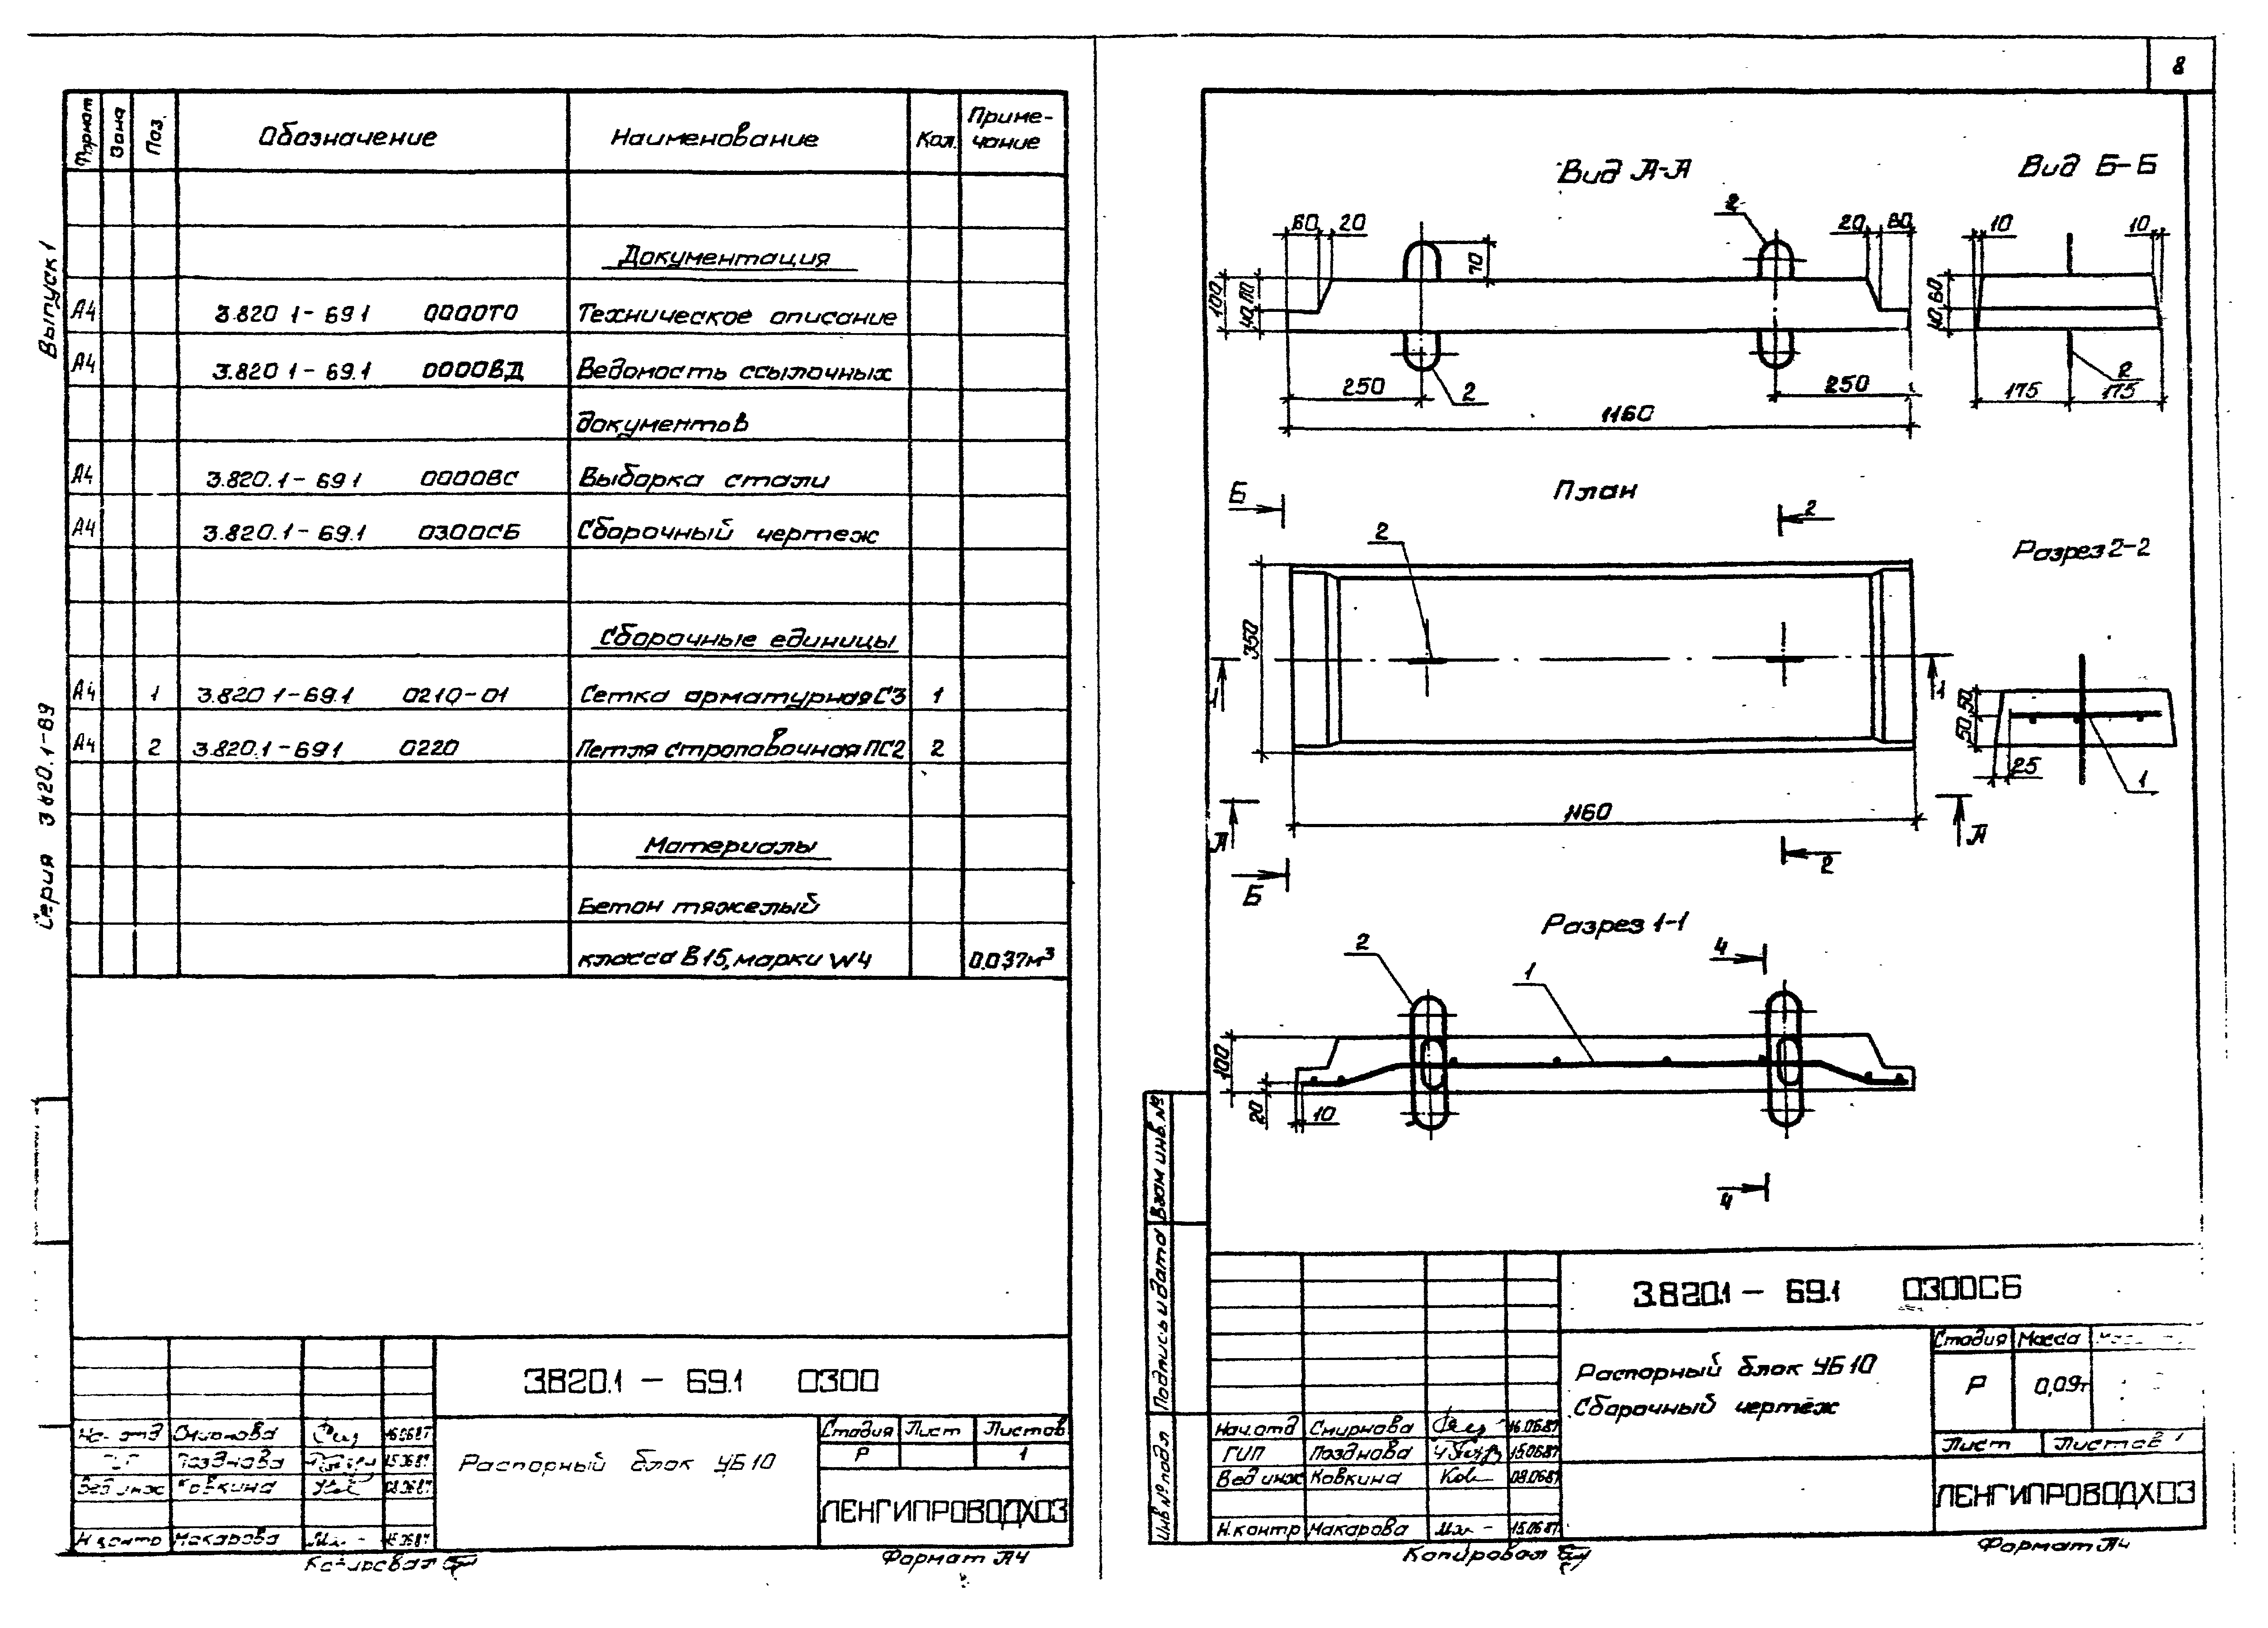 8
Выпуск 1
Серия 3.820.1-69
Формат Зона Поз. Обозначение Наименование Кол. Приме-
чание
Документация
А4 3.820 1-69 1 0000ТО Техническое описание
А4 3.820 1-69.1 0000ВД Ведомость ссылочных
документов
А4 3.820.1-69 1 0000ВС Выборка стали
А4 3.820.1-69.1 0300СБ Сборочный чертеж
Сборочные единицы
А4 1 3.820 1-69.1 0210-01 Сетка арматурная С3 1
А4 2 3.820.1-69 1 0220 Петля строповочная ПС2 2
Материалы
Бетон тяжелый
класса В15, марки W4 0.037м³
3.820.1 - 69.1 0300
Нач. отд Смирнова 16.06.87
ГИП Позднова 15.06.87
Вед инж Ковкина 08.06.87
Н контр Макарова 15.06.87
Распорный блок УБ10
Стадия Лист Листов
Р 1
ЛЕНГИПРОВОДХОЗ
Копировал
Формат А4
Вид А-А
Вид Б-Б
60 20 2 20 60 10 10
70
100 60 40
60 40
250 2 250
1160
2
175 175
План
Б
2
2
350
1 1
1160
А А
2
Б
Разрез 2-2
50 50
25
1
Разрез 1-1
2
1
4
100
20
10
4
Взам инв. №
Подпись и дата
Инв № подл
3.820.1 - 69.1 0300СБ
Распорный блок УБ10
Сборочный чертёж
Стадия Масса
Р 0,09т
Лист Листов 1
ЛЕНГИПРОВОДХОЗ
Нач. отд Смирнова 16.06.87
ГИП Позднова 15.06.87
Вед инж Ковкина 08.06.87
Н.контр Макарова 15.06.87
Копировал
Формат А4